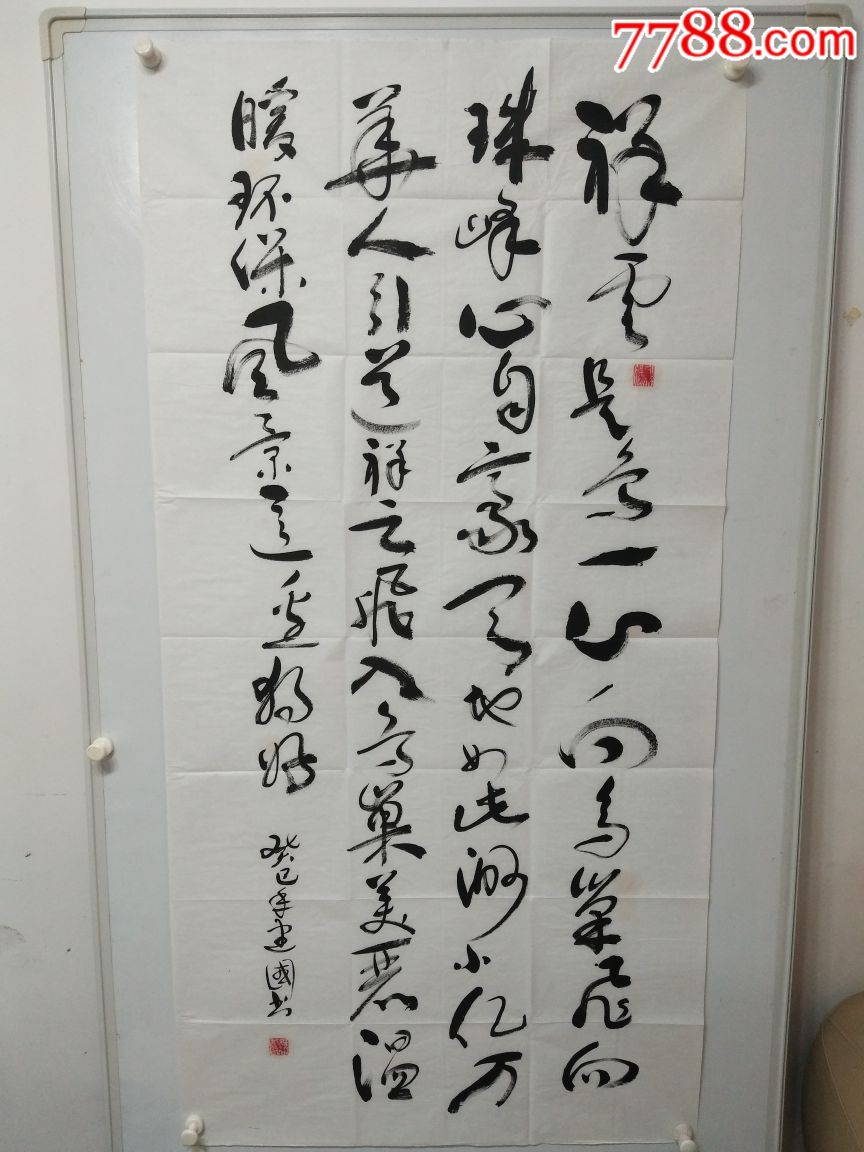 7788.com
祥云是鸟一心向鸟巢飞向
珠峰心自豪天地如此渺小亿万
華人引道祥云飛入鸟巢美麗温
暖环保風景这边独好
癸巳年建國书